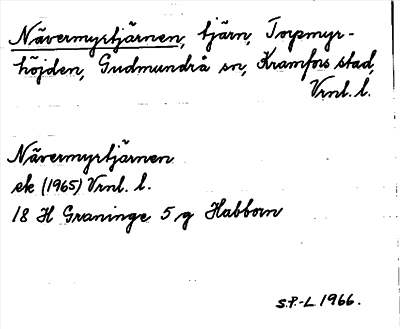 Nävermyrtjärnen, tjärn, Torpmyr-
höjden, Gudmundrå sn, Kramfors stad,
Vrnl. l.
Nävermyrtjärnen
ek (1965) Vrnl. l.
18 H Graninge 5 g Habborn
S.P.-L 1966.